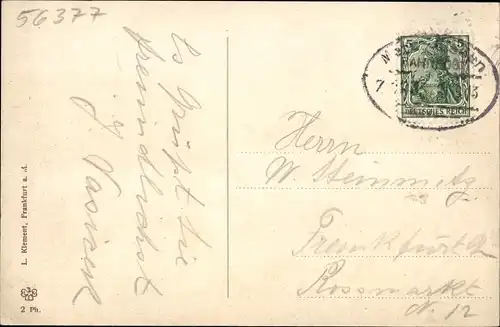 56377
Es grüßt Sie
freundlichst
L. Klement, Frankfurt a. M.
2 Ph.
5 5
DEUTSCHES REICH
7 3
Herrn
W. Steinmetz
Frankfurt a
Rossmarkt
N. 12